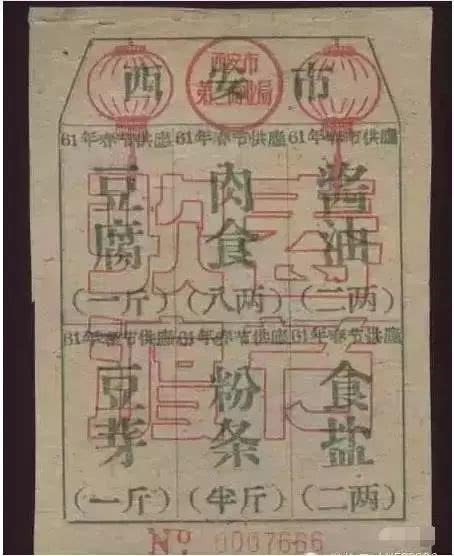 西安市
西安市
61年春节供應 61年春节供應 61年春节供應
豆腐 肉食 酱油
(一斤) (八两) (二两)
61年春节供應 61年春节供應 61年春节供應
豆芽 粉条 食盐
(一斤) (半斤) (二两)
No 0007666